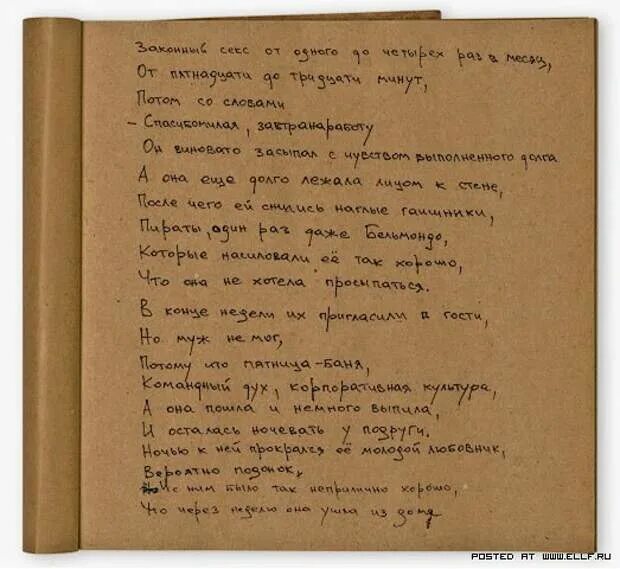 Законный секс от одного до четырех раз в месяц,
От пятнадцати до тридцати минут,
Потом со словами
- Спасибомилая, завтранаработу
Он виновато засыпал с чувством выполненного долга
А она еще долго лежала лицом к стене,
После чего ей снились наглые гаишники,
Пираты, один раз даже Бельмондо,
Которые насиловали её так хорошо,
Что она не хотела просыпаться.
В конце недели их пригласили в гости,
Но муж не мог,
Потому что пятница-баня,
Командный дух, корпоративная культура,
А она пошла и немного выпила,
И осталась ночевать у подруги.
Ночью к ней прокрался её молодой любовник,
Вероятно подонок,
И с ним было так неприлично хорошо,
Что через неделю она ушла из дома
POSTED AT WWW.ELLF.RU